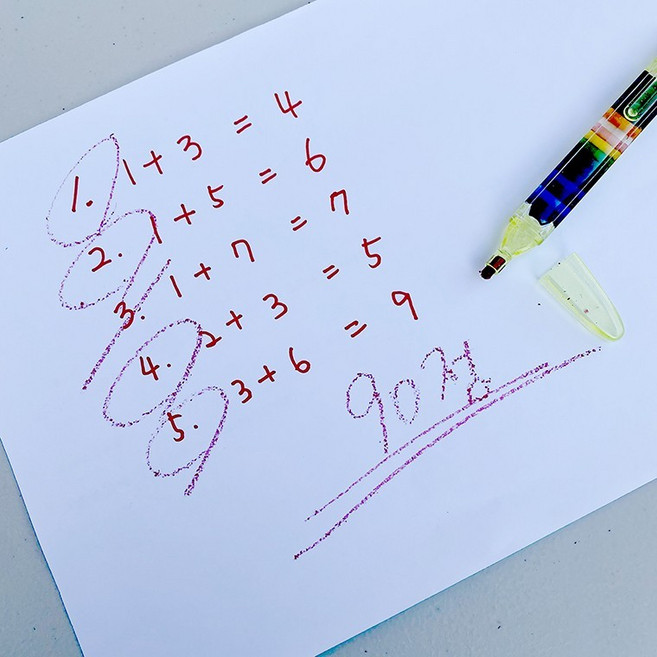 1. 1 + 3 = 4
2. 1 + 5 = 6
3. 1 + 7 = 7
4. 2 + 3 = 5
5. 3 + 6 = 9
90점